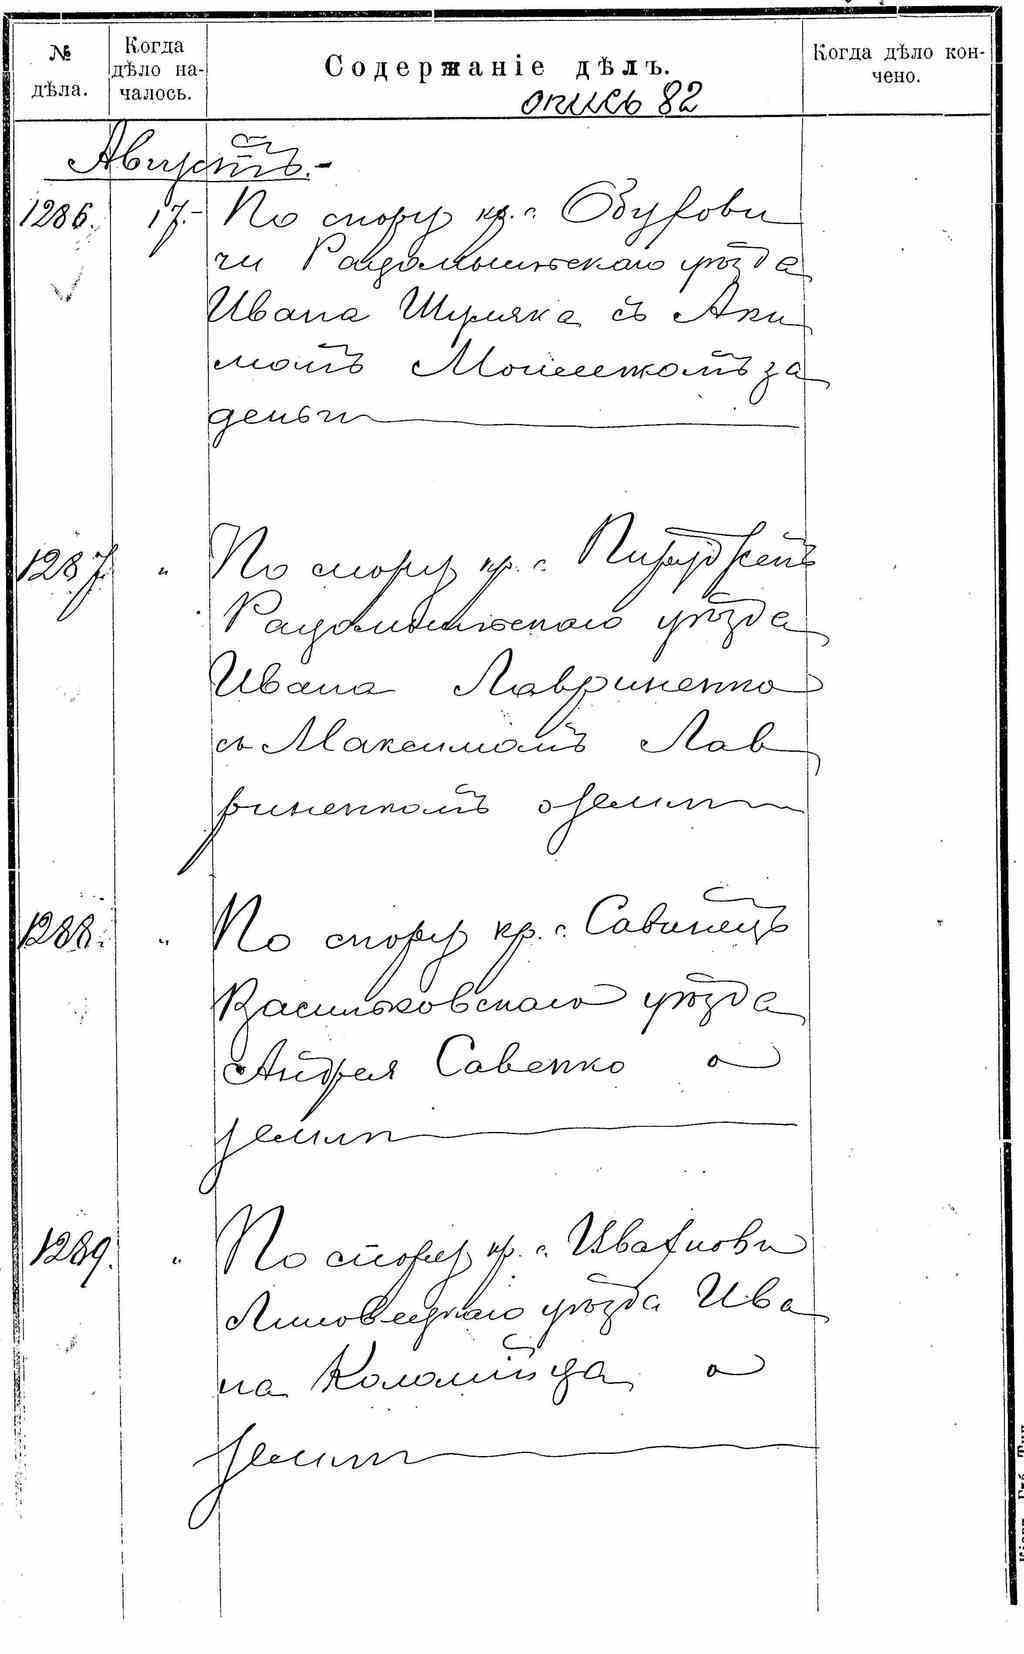 № дѣла.
Когда дѣло на-
чалось.
Содержаніе дѣлъ.
Когда дѣло кон-
чено.
опись 82
Августъ.-
1286. 17.- По спору кр. с. Обухови
чи Радомысльскаго уѣзда
Ивана Шуляка съ Аки
момъ Мошенкомъ за
деньги
1287. " По спору кр. с.
Радомысльскаго уѣзда
Ивана Лавриненко
съ Максимомъ Лав
риненкомъ о земли
1288. " По спору кр. с. Савинецъ
Васильковскаго уѣзда
Андрея Савенко о
земли
1289. " По спору кр. с. Ивахнови
Липовецкаго уѣзда Ива
на Коломійца о
земли